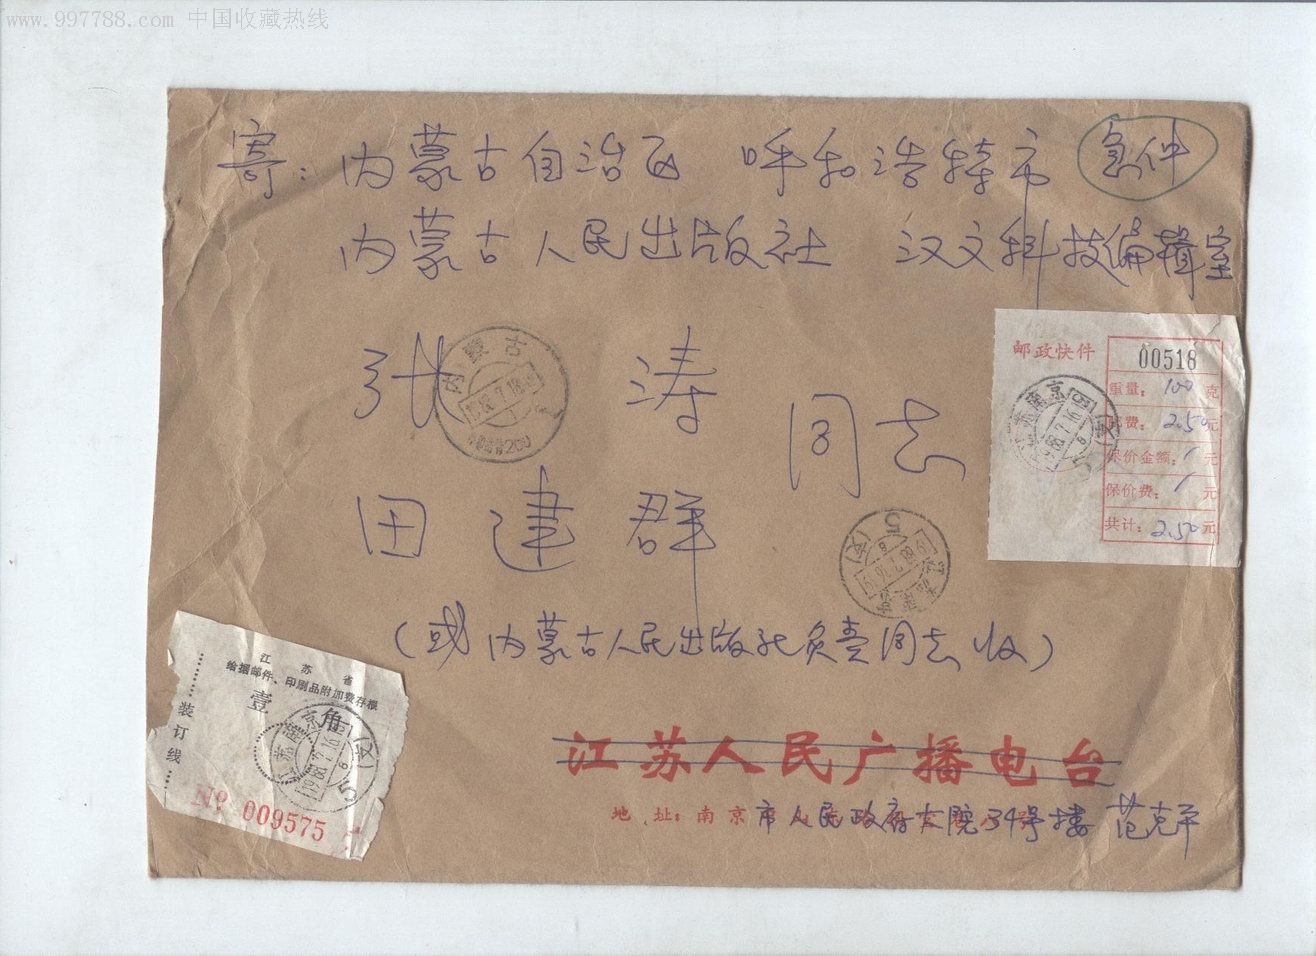 www.997788.com 中国收藏热线
寄：内蒙古自治区 呼和浩特市 急件
内蒙古人民出版社 汉文科技编辑室
张 涛
田建群
同志
(或内蒙古人民出版社负责同志收)
邮政快件
00518
重量：100克
邮费：2.50元
保价金额：/元
保价费：/元
共计：2.50元
内蒙古
江苏南京
1988.7.16
5(支)
江苏省
给据邮件、印刷品附加费存根
壹角
装订线
江苏南京
1988.7.16
5(支)
No 009575
江苏人民广播电台
地址：南京市人民政府大院34号楼 范克平